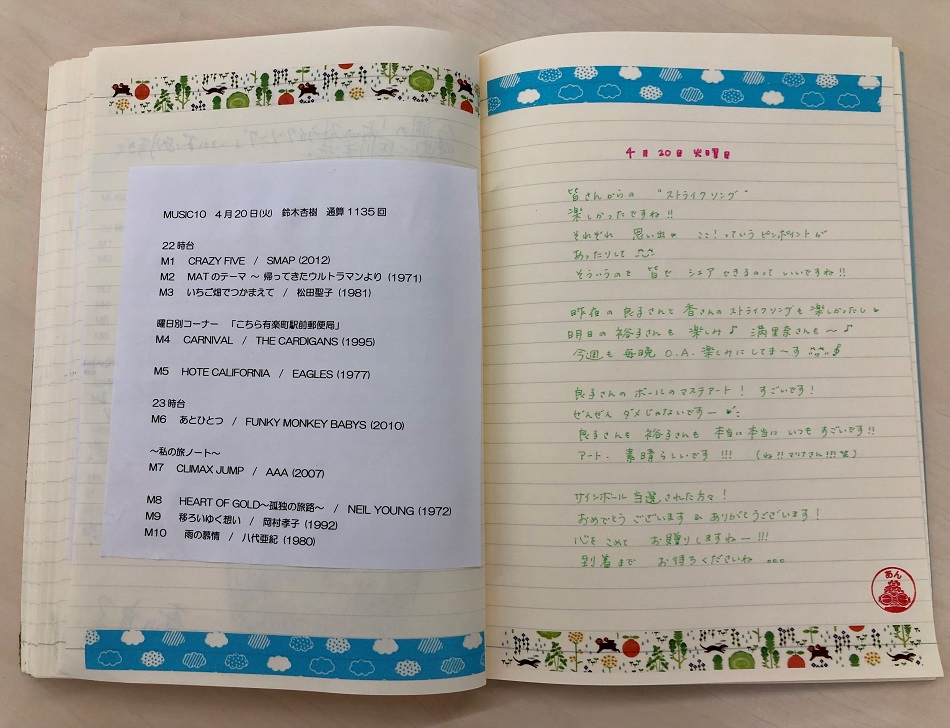 MUSIC10 4月20日(火) 鈴木杏樹 通算1135回
22時台
M1 CRAZY FIVE / SMAP (2012)
M2 MATのテーマ ～ 帰ってきたウルトラマンより (1971)
M3 いちご畑でつかまえて / 松田聖子 (1981)
曜日別コーナー 「こちら有楽町駅前郵便局」
M4 CARNIVAL / THE CARDIGANS (1995)
M5 HOTE CALIFORNIA / EAGLES (1977)
23時台
M6 あとひとつ / FUNKY MONKEY BABYS (2010)
～私の旅ノート～
M7 CLIMAX JUMP / AAA (2007)
M8 HEART OF GOLD～孤独の旅路～ / NEIL YOUNG (1972)
M9 移ろいゆく想い / 岡村孝子 (1992)
M10 雨の慕情 / 八代亜紀 (1980)
4月20日 火曜日
皆さんからの "ストライクソング"
楽しかったですね!!
それぞれ 思い出 ここ!っていうピンポイントが
あったりして
そういうので 皆で シェア できるのって いいですね!!
昨夜の 良子さんと 香さんの ストライクソングも 楽しかったし
明日の 裕子さんも 楽しみ♪ 満里奈さんも～♪
今週も 毎晩 O.A. 楽しみにしてま～す
良子さんの ボールのマステアート! すごいです!
ぜんぜん ダメじゃないですー
良子さんも 裕子さんも 本当に本当に いつも すごいです!!
アート. 素晴らしいです!!! (ね!!マリナさん!!!笑)
サインボール 当選された方々!
おめでとう ございます & ありがとうございます!
心を こめて お贈りしますねー!!!
到着まで お待ちくださいね 。。。
あん